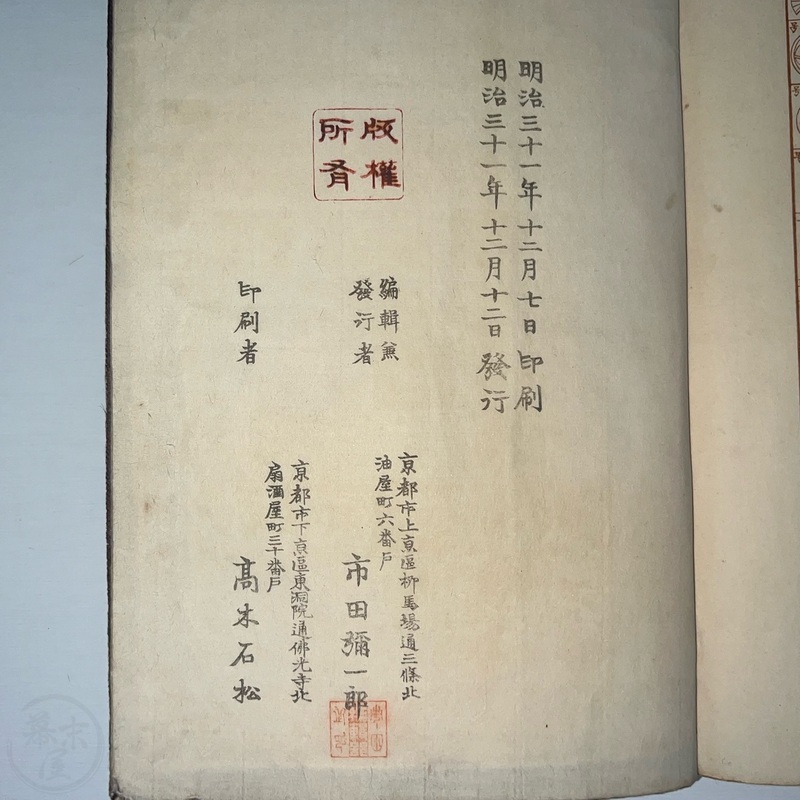 明治三十一年十二月七日印刷
明治三十一年十二月十二日發行
版權
所有
編輯兼
發行者
京都市上京區柳馬場通三條北
油屋町六番戶
市田彌一郎
印刷者
京都市下京區東洞院通佛光寺北
扇酒屋町三十番戶
髙木石松
幕末屋